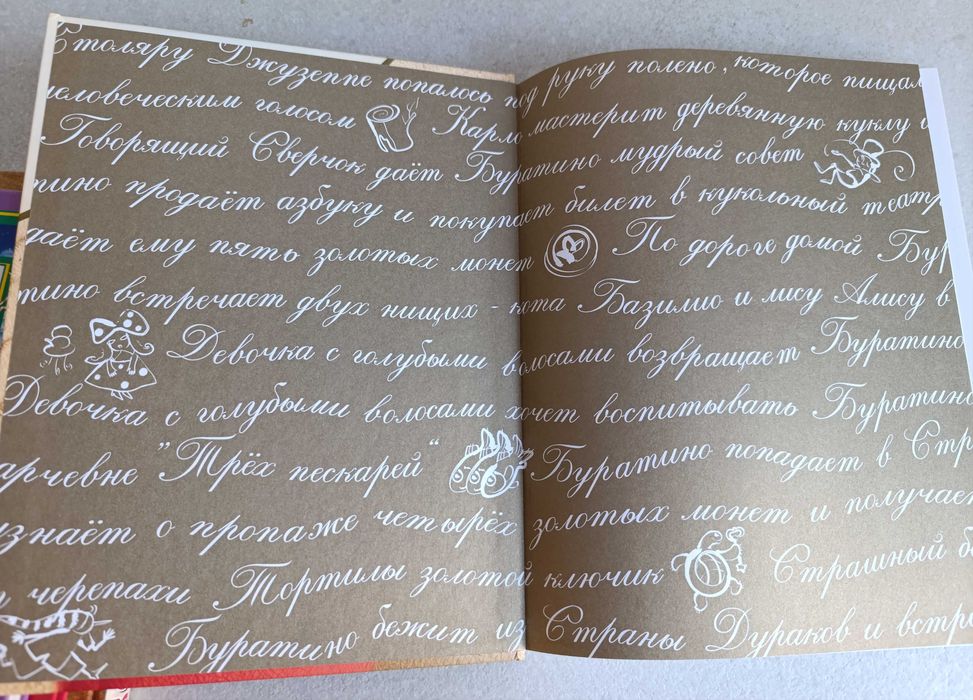 Столяру Джузеппе попалось под руку полено, которое пищало
человеческим голосом Карло мастерит деревянную куклу и
Говорящий Сверчок даёт Буратино мудрый совет
тино продаёт азбуку и покупает билет в кукольный театр
даёт ему пять золотых монет По дороге домой Бур
тино встречает двух нищих - кота Базилио и лису Алису в
Девочка с голубыми волосами возвращает Буратино
Девочка с голубыми волосами хочет воспитывать Буратино
арчевне "Трёх пескарей" Буратино попадает в Стр
узнаёт о пропаже четырёх золотых монет и получает
черепахи Тортилы золотой ключик Страшный б
Буратино бежит из Страны Дураков и встре